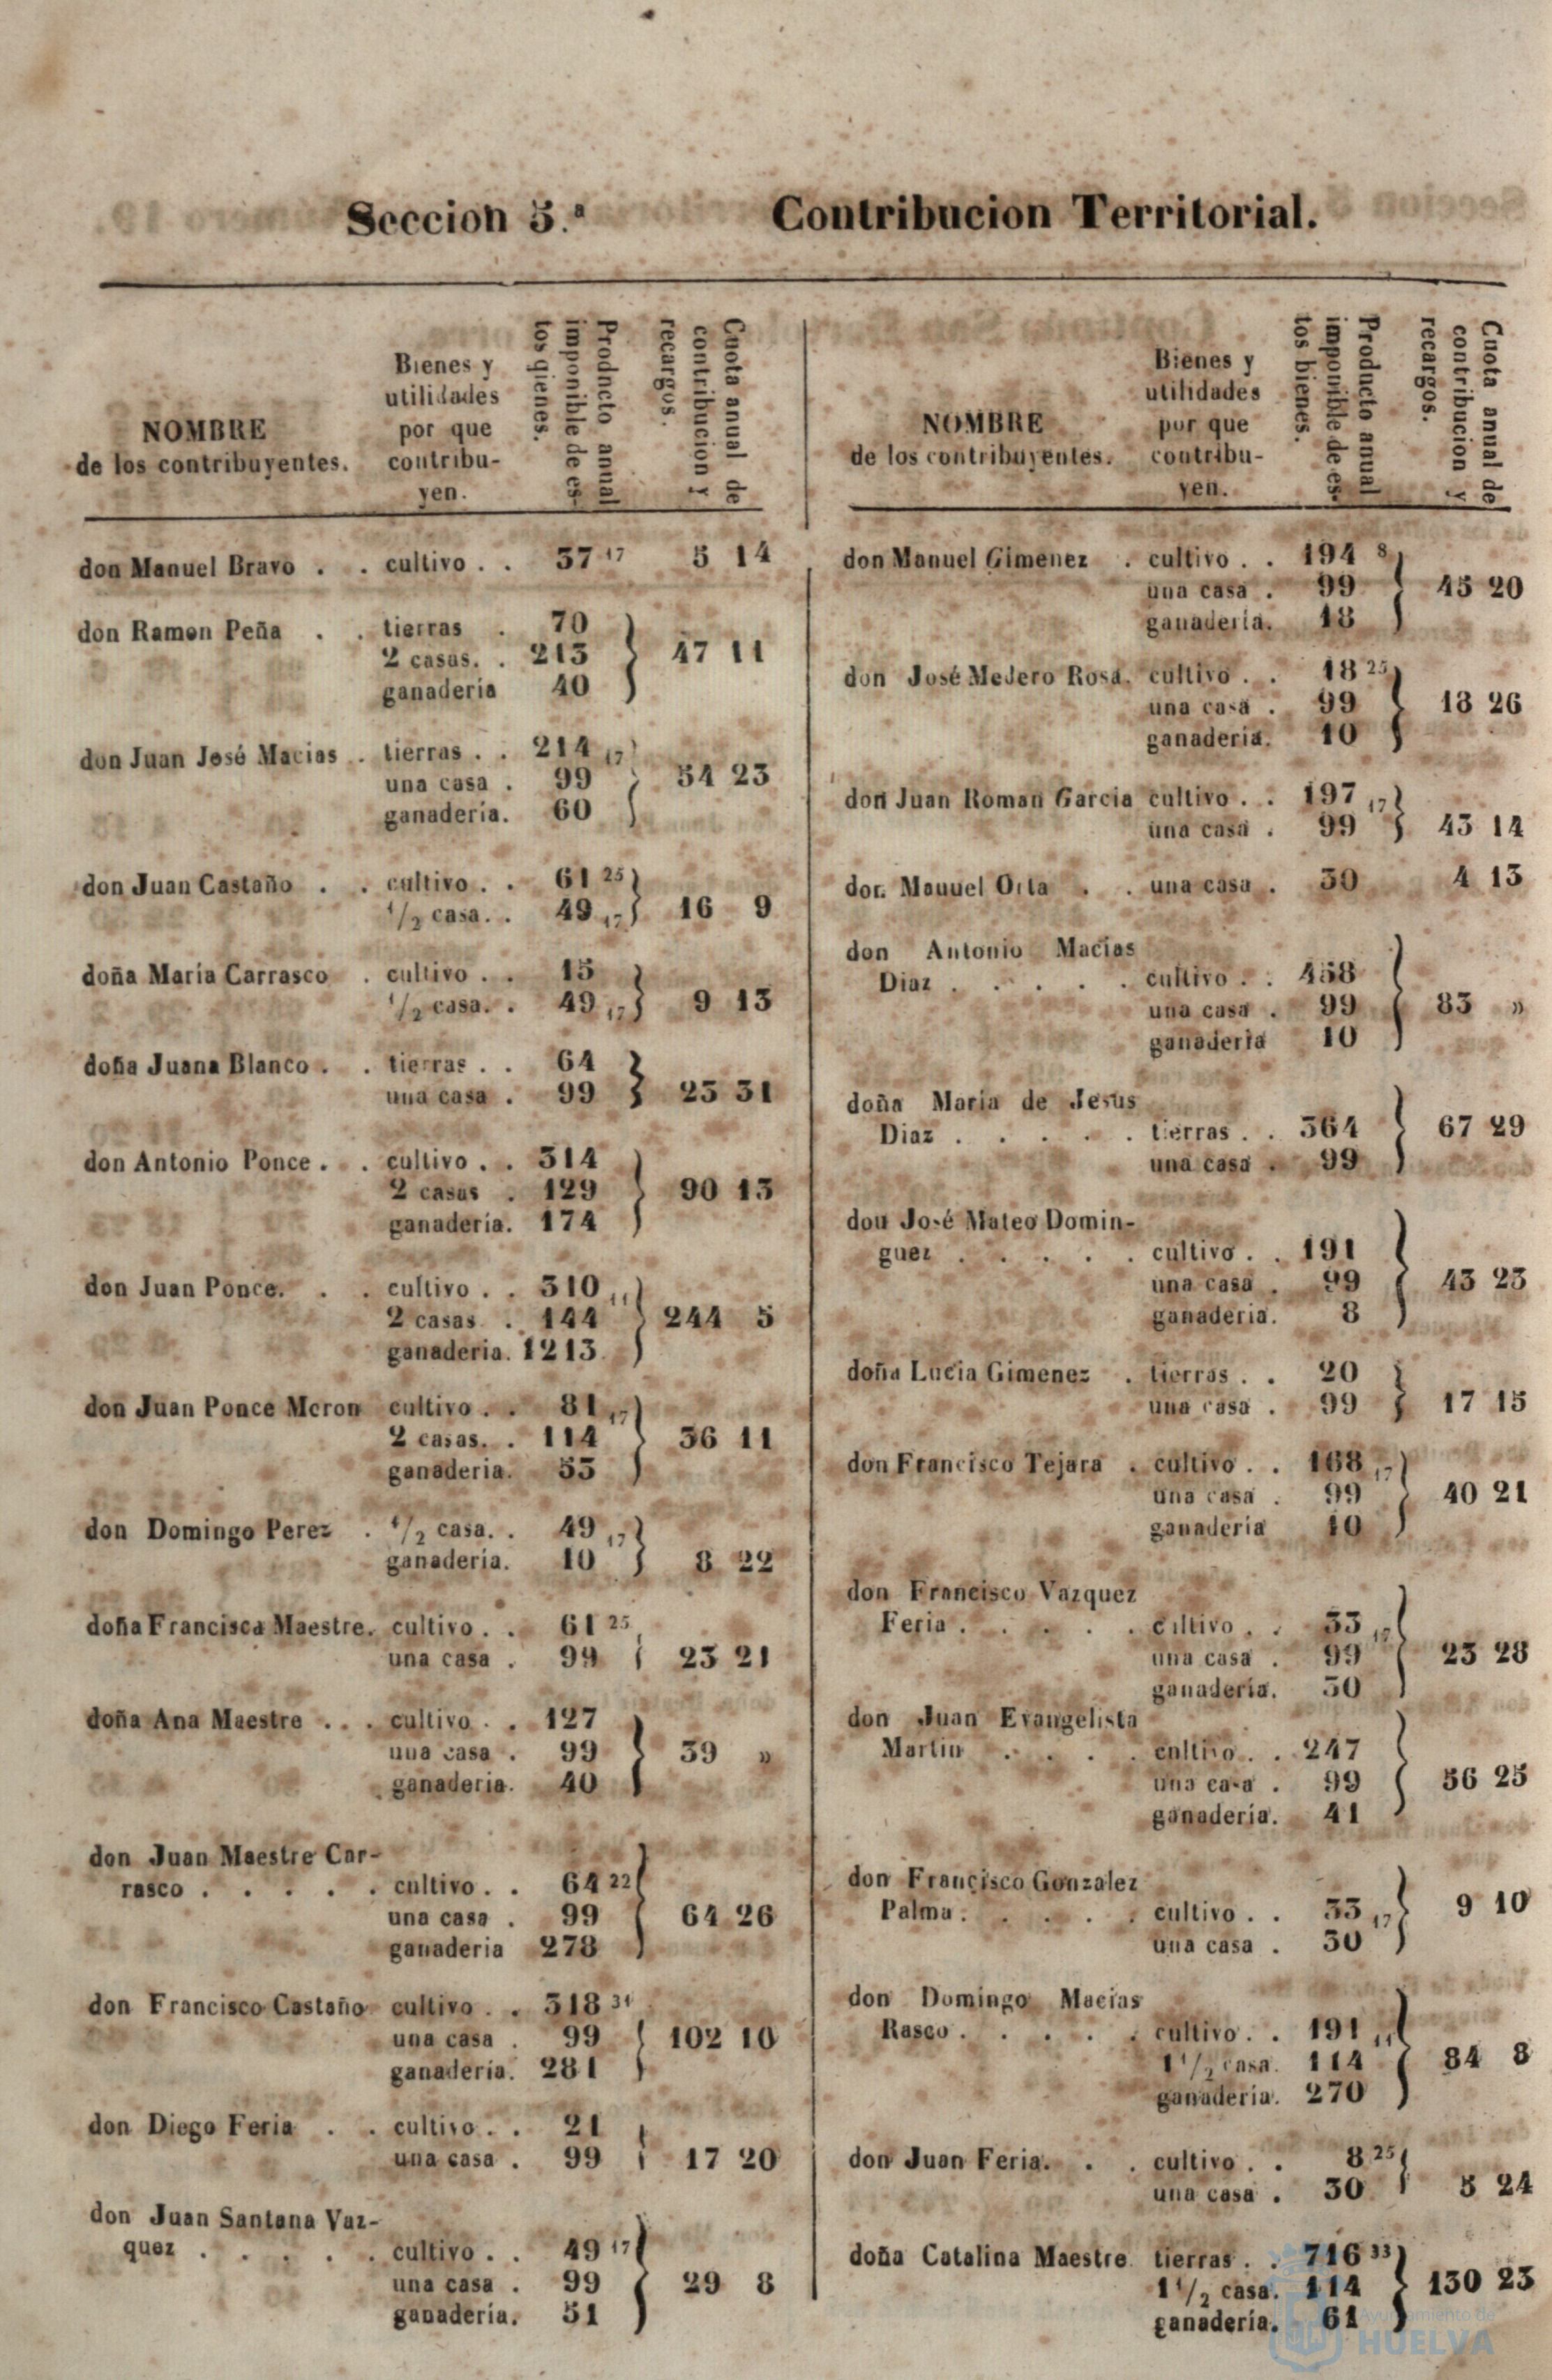 Seccion 5.ª Contribucion Territorial.
NOMBRE
de los contribuyentes.
Bienes y
utilidades
por que
contribu-
yen.
Producto anual
imponible de es-
tos bienes.
Cuota anual de
contribucion y
recargos.
don Manuel Bravo . . cultivo . . 37 17 5 14
don Ramon Peña . . tierras . 70
2 casas. . 213 47 11
ganaderia 40
don Juan José Macias . tierras . . 214 17
una casa . 99 54 23
ganadería. 60
don Juan Castaño . . cultivo . . 61 25
1/2 casa. . 49 17 16 9
doña María Carrasco . cultivo . . 15
1/2 casa. . 49 17 9 15
doña Juana Blanco . . tierras . . 64
una casa . 99 23 31
don Antonio Ponce . . cultivo . . 314
2 casas . 129 90 13
ganadería. 174
don Juan Ponce. . . cultivo . . 310 11
2 casas . 144 244 5
ganaderia. 1213
don Juan Ponce Meron cultivo . . 81 17
2 casas. . 114 36 11
ganaderia. 53
don Domingo Perez . 1/2 casa. . 49 17
ganadería. 10 8 22
doña Francisca Maestre. cultivo . . 61 25
una casa . 99 23 21
doña Ana Maestre . . . cultivo . . 127
una casa . 99 39 »
ganaderia. 40
don Juan Maestre Car-
rasco . . . . . . cultivo . . 64 22
una casa . 99 64 26
ganaderia 278
don Francisco Castaño cultivo . . 318 31
una casa . 99 102 10
ganadería. 281
don Diego Feria . . cultivo . . 21
una casa . 99 17 20
don Juan Santana Vaz-
quez . . . . . . cultivo . . 49 17
una casa . 99 29 8
ganadería. 51
NOMBRE
de los contribuyentes.
Bienes y
utilidades
por que
contribu-
yen.
Producto anual
imponible de es-
tos bienes.
Cuota anual de
contribucion y
recargos.
don Manuel Gimenez . cultivo . . 194 8
una casa . 99 45 20
ganadería. 18
don José Medero Rosa. cultivo . . 18 25
una casa . 99 18 26
ganadería. 10
don Juan Roman Garcia cultivo . . 197 17
una casa . 99 43 14
don Manuel Orta . . una casa . 30 4 13
don Antonio Macias
Diaz . . . . . cultivo . . 458
una casa . 99 83 »
ganaderia 10
doña Maria de Jesus
Diaz . . . . . tierras . . 364 67 29
una casa . 99
don José Mateo Domin-
guez . . . . . cultivo . . 191
una casa . 99 43 23
ganaderia. 8
doña Lucia Gimenez . tierras . . 20
una casa . 99 17 15
don Francisco Tejara . cultivo . . 168 17
una casa . 99 40 21
ganaderia 10
don Francisco Vazquez
Feria . . . . . cultivo . . 33 17
una casa . 99 23 28
ganadería. 30
don Juan Evangelista
Martin . . . . cultivo . . 247
una casa . 99 56 23
ganadería. 41
don Francisco Gonzalez
Palma . . . . . cultivo . . 33 17 9 10
una casa . 30
don Domingo Macias
Rasco . . . . . cultivo . . 191 11
1 1/2 casa. 114 84 8
ganadería. 270
don Juan Feria. . . cultivo . . 8 25
una casa . 30 5 24
doña Catalina Maestre tierras . . 716 33
1 1/2 casa. 114 130 23
ganadería. 61
Ayuntamiento de
HUELVA